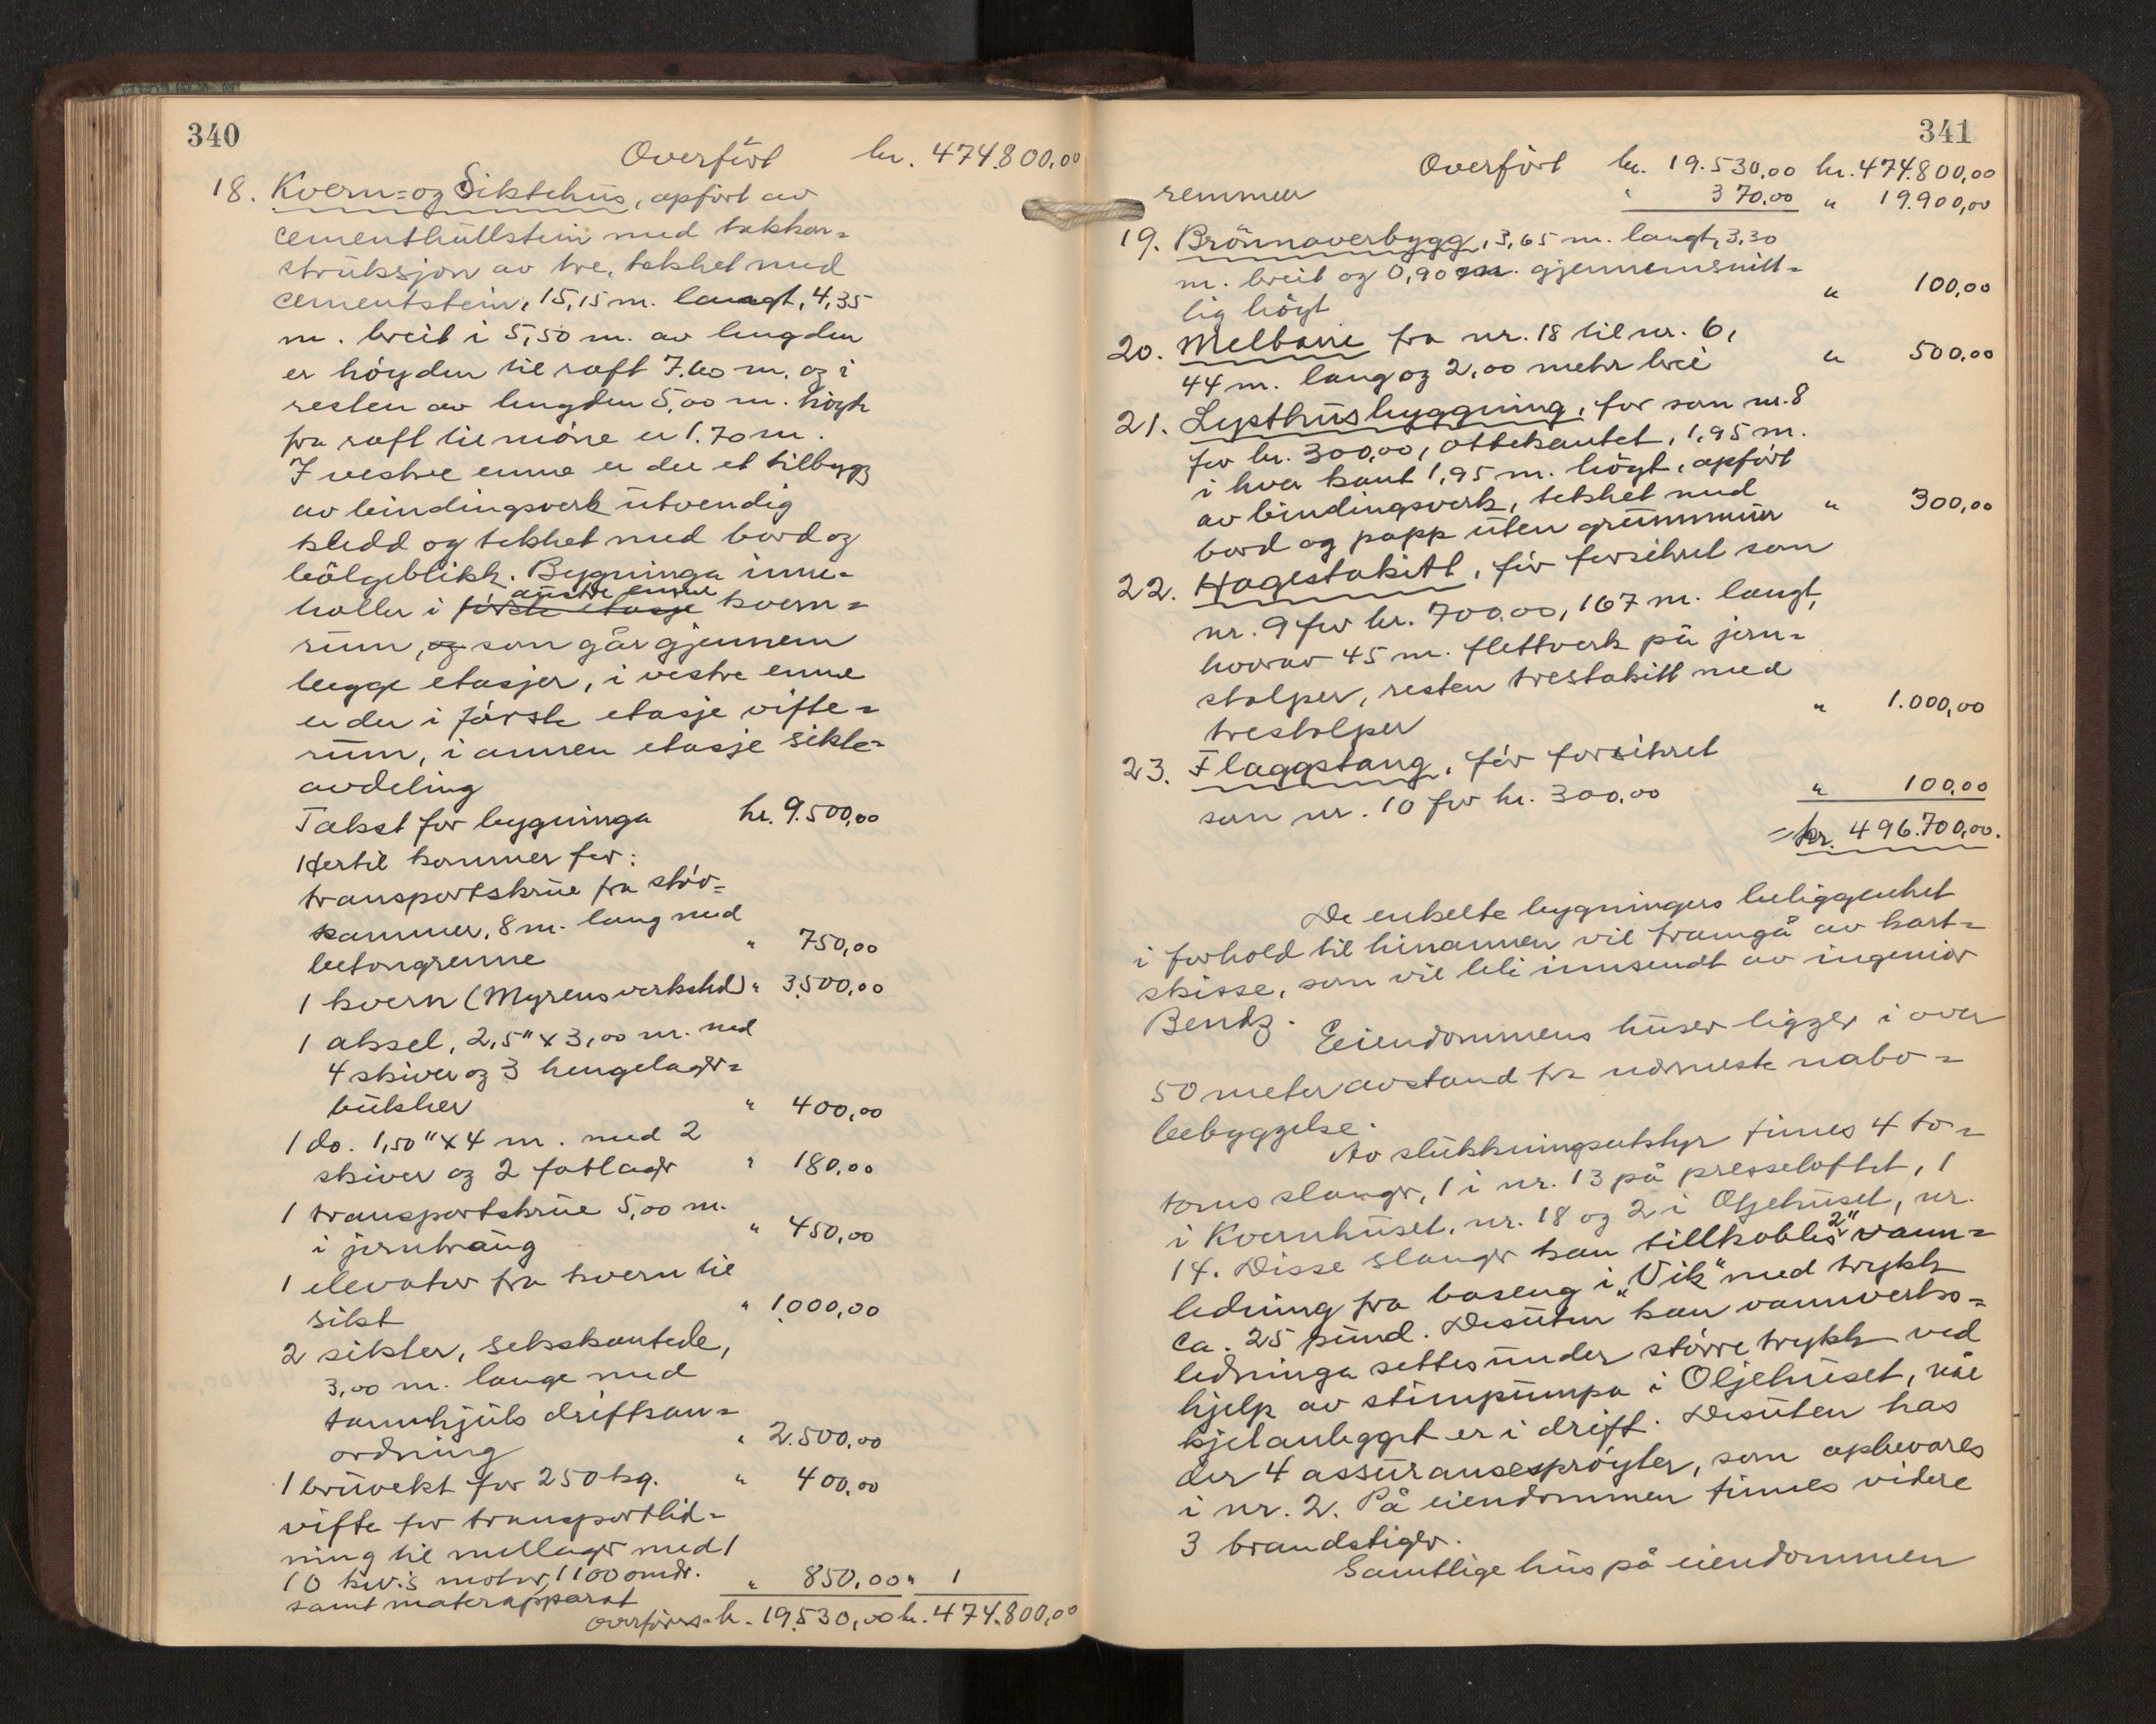 340
Overført kr. 474.800,00
18. Kvern= og Siktehus, opført av
cementhullstein med takkon=
struksjon av tre, tekket med
cementstein, 15,15 m. langt, 4,35
m. breit i 5,50 m. av lengden
er høyden til raft 7.60 m. og i
resten av lengden 5,00 m. høgt
fra raft til møne er 1.70 m.
I vestre enne er der et tilbygg
av bindingsverk utvendig
kledd og tekket med bord og
bölgeblikk. Bygninga inne-
austre enne
holder i første etasje kvern=
rum, og som går gjennem
begge etasjer, i vestre enne
er der i første etasje vifte=
rum, i annen etasje sikte=
avdeling
Takst for bygninga kr. 9.500,00
Hertil kommer for:
transportskrue fra støv=
kammer, 8 m. lang med
betongrenne " 750,00
1 kvern (Myrens verksted) " 3.500,00
1 aksel, 2,5" x 3,00 m. med
4 skiver og 3 hengelager=
bukker " 400,00
1 do. 1,50" x 4 m. med 2
skiver og 2 fotlager " 180,00
1 transportskrue 5,00 m.
i jerntraug " 450,00
1 elevator fra kvern til
sikt " 1.000,00
2 sikter, sekskantede,
3,00 m. lange med
tannhjuls driftsan=
ordning " 2.500,00
1 bruvekt for 250 kg. " 400,00
vifte for transportled=
ning til mellager med 1
10 hk.s motor, 1100 omdr.
samt materapparat " 850,00 "
overføres kr. 19.530,00 kr. 474.800,00
341
Overført kr. 19.530,00 kr. 474.800,00
remmer " 370.00 " 19.900,00
19. Brönnoverbygg, 3,65 m. langt, 3,30
m. breit og 0,90 m. gjennemsnitt=
lig högt " 100,00
20. Melbane fra nr. 18 til nr. 6,
44 m. lang og 2,00 meter brei " 500,00
21. Lysthusbyggning, før som nr. 8
for kr. 300,00, ottekantet, 1,95 m.
i hver kant 1,95 m. högt, opfört
av bindingsverk, tekket med
bord og papp uten grunnmur " 300,00
22. Hagestakitt, før forsikret som
nr. 9 for kr. 700.00, 167 m. langt,
hvorav 45 m. flettverk på jern=
stolper, resten trestakitt med
trestolper " 1.000,00
23. Flaggstang, før forsikret
som nr. 10 for kr. 300,00 " 100,00
= kr. 496.700,00.
De enkelte bygningers beliggenhet
i forhold til hinannen vil framgå av kart=
skisse, som vil bli innsendt av ingeniør
Bendz.
Eiendommens huser ligger i over
50 meter avstand fra nærmeste nabo=
bebyggelse.
Av slukkningsutstyr finnes 4 to=
toms slanger, 1 i nr. 13 på presseloftet, 1
i Kvernhuset, nr. 18 og 2 i Oljehuset, nr.
14. Disse slanger kan tillkobles 2" vann=
ledning fra baseng i „Vik" med trykk
ca. 25 pund. Desuten kan vannverks=
ledninga settes under større trykk ved
hjelp av stimpumpa i Oljehuset, når
kjelanlegget er i drift. Desuten has
der 4 assuransesprøyter, som opbevares
i nr. 2. På eiendommen finnes videre
3 brandstiger.
Samtlige hus på eiendommen